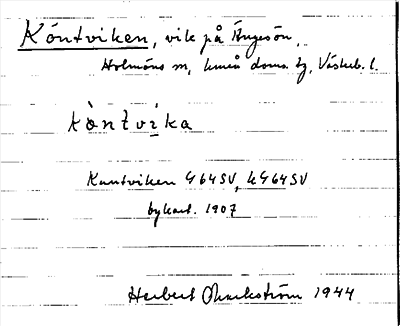 Köntviken, vik på Ängesön,
Holmöns sn, Umeå doms. tg, Västerb. l.
kòntvika
Kuntviken 464SV, k 464SV
bykart. 1907
Herbert 1944